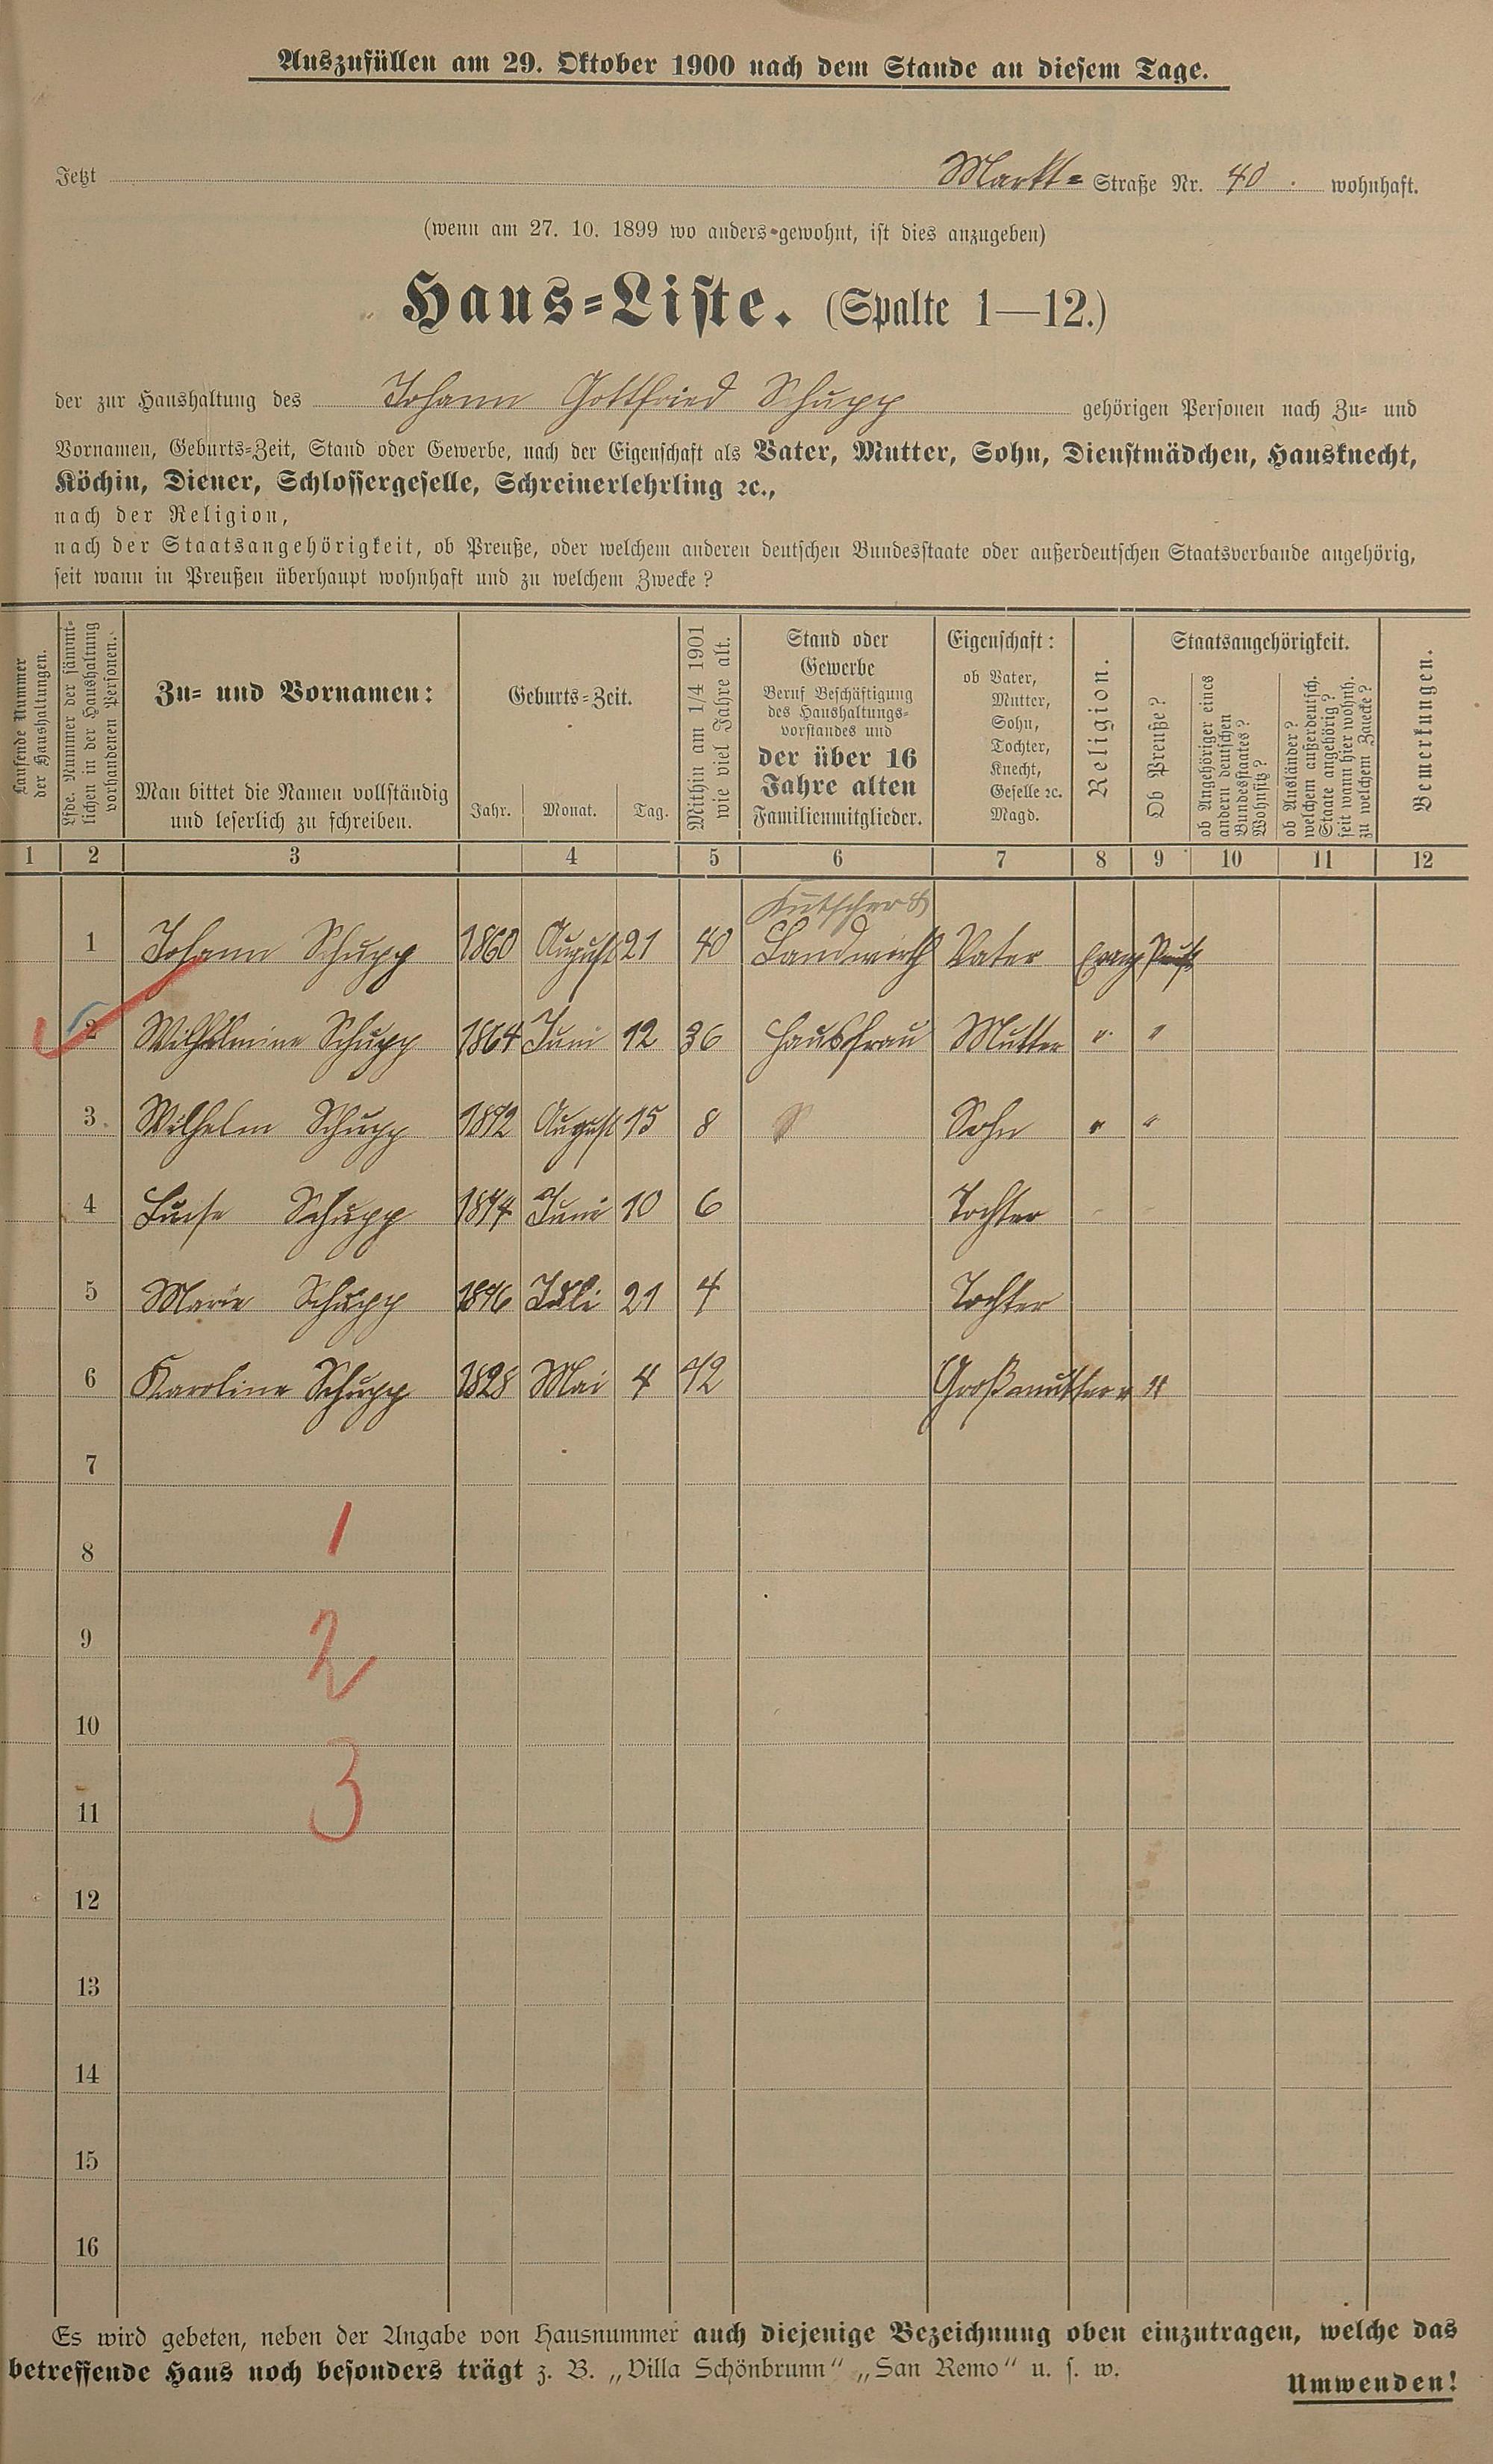 Auszufüllen am 29. Oktober 1900 nach dem Stande an diesem Tage.
Jetzt Markt- Straße Nr. 40. wohnhaft.
(wenn am 27. 10. 1899 wo anders gewohnt, ist dies anzugeben)
Haus-Liste. (Spalte 1—12.)
der zur Haushaltung des Johann Gottfried Schupp gehörigen Personen nach Zu- und
Vornamen, Geburts-Zeit, Stand oder Gewerbe, nach der Eigenschaft als Vater, Mutter, Sohn, Dienstmädchen, Hausknecht,
Köchin, Diener, Schlossergeselle, Schreinerlehrling ꝛc.,
nach der Religion,
nach der Staatsangehörigkeit, ob Preuße, oder welchem anderen deutschen Bundesstaate oder außerdeutschen Staatsverbande angehörig,
seit wann in Preußen überhaupt wohnhaft und zu welchem Zwecke?
Laufende Nummer
der Haushaltungen.
Lfde. Nummer der sämmt-
lichen in der Haushaltung
vorhandenen Personen.
Zu- und Vornamen:
Man bittet die Namen vollständig
und leserlich zu schreiben.
Geburts-Zeit.
Jahr. Monat. Tag.
Mithin am 1/4 1901
wie viel Jahre alt.
Stand oder
Gewerbe
Beruf Beschäftigung
des Haushaltungs-
vorstandes und
der über 16
Jahre alten
Familienmitglieder.
Eigenschaft:
ob Vater,
Mutter,
Sohn,
Tochter,
Knecht,
Geselle ꝛc.
Magd.
Religion.
Staatsangehörigkeit.
Ob Preuße?
ob Angehöriger eines
andern deutschen
Bundesstaates?
Wohnsitz?
ob Ausländer?
welchem außerdeutsch.
Staate angehörig?
seit wann hier wohnh.
zu welchem Zwecke?
Bemerkungen.
1 2 3 4 5 6 7 8 9 10 11 12
Kutscher &
1 Johann Schupp 1860 August 21 40 Landwirth Vater Evang
2 Wilhelmine Schupp 1864 Juni 12 36 Hausfrau Mutter " "
3 Wilhelm Schupp 1892 August 15 8 Sohn " "
4 Luise Schupp 1894 Juni 10 6 Tochter
5 Marie Schupp 1896 Juli 21 4 Tochter
6 Karoline Schupp 1828 Mai 4 72 Großmutter " "
7
1
8
9
2
10
3
11
12
13
14
15
16
Es wird gebeten, neben der Angabe von Hausnummer auch diejenige Bezeichnung oben einzutragen, welche das
betreffende Haus noch besonders trägt z. B. „Villa Schönbrunn" „San Remo" u. s. w.
Umwenden!